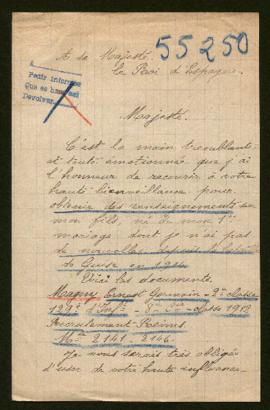 A sa Majesté
55250
le Roi d'Espagne.
Pedir informes
Devolver
Majesté.
C'est la main tremblante
et toute émotionnée que j'ai
l'honneur de recourir à votre
haute bienveillance pour
obtenir des renseignements sur
mon fils,
mariage dont je n'ai pas
de nouvelles depuis la bataille
de Guise en 1914
Voici les documents.
Magny Ernest Germain - 2e classe
d'Inf - 8e Cie - classe 1912
Recrutement - Reims
Mle 2141. 2146.
Je vous serais très obligée
d'user de votre haute influence